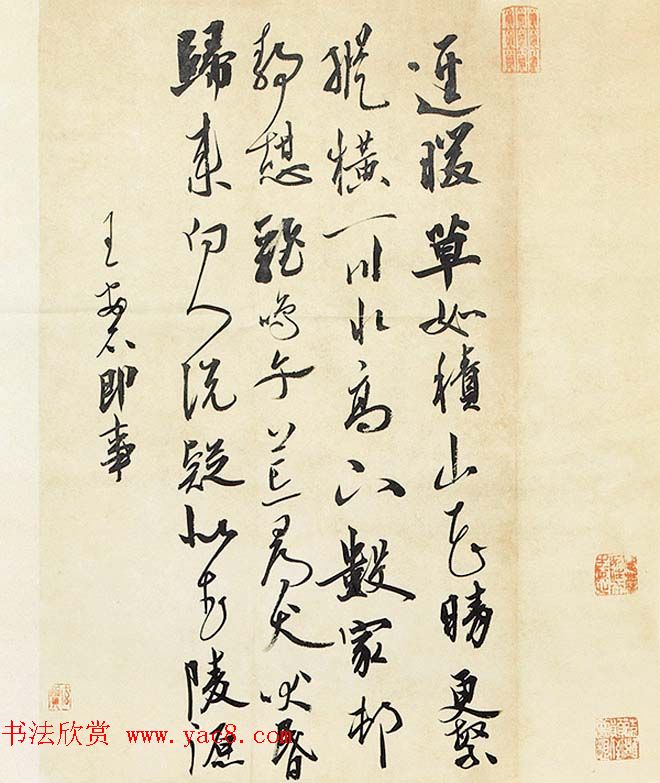 逕暖草如積山花晴更繁
縱橫一川水高下數家村
静憩雞鳴午荒尋犬吠昏
歸来向人说疑似武陵源
王安石即事
书法欣赏 www.yac8.com